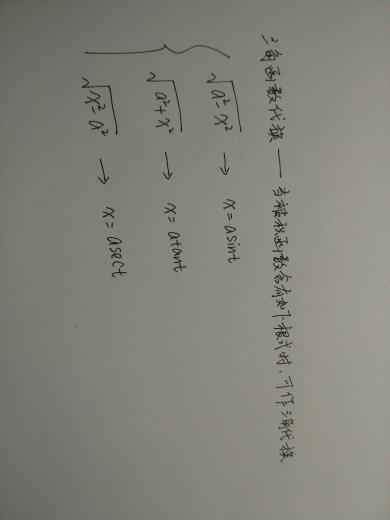 三角函数代换 —— 当被积函数含有如下根式时，可作三角代换
√a²-x² → x=asint
√a²+x² → x=atant
√x²-a² → x=asect